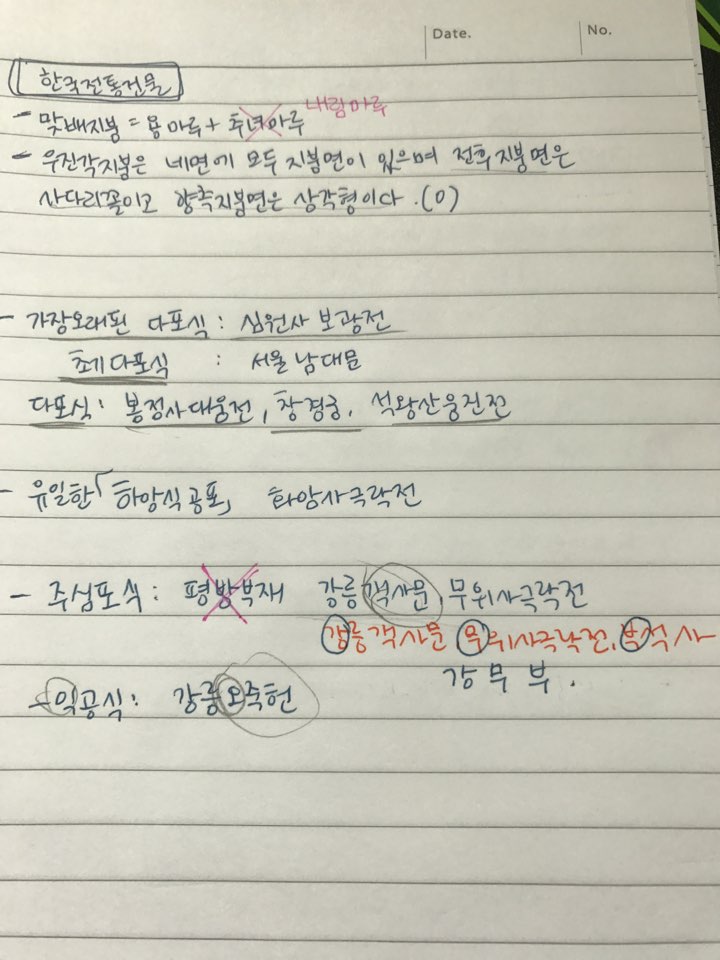 Date.
No.
한국전통건물
내림마루
- 맞배지붕 = 용마루 + 추녀마루
- 우진각지붕은 네면에 모두 지붕면이 있으며 전후지붕면은
사다리꼴이고 양측지붕면은 삼각형이다.(O)
- 가장오래된 다포식 : 심원사 보광전
초기다포식 : 서울 남대문
다포식 : 봉정사대웅전, 창경궁, 석왕산응진전
- 유일한「하앙식공포」 화암사극락전
- 주심포식 : 평방부재 강릉객사문, 무위사극락전
강릉객사문 무위사극락전, 부석사
강 무 부.
- 익공식 : 강릉오죽헌